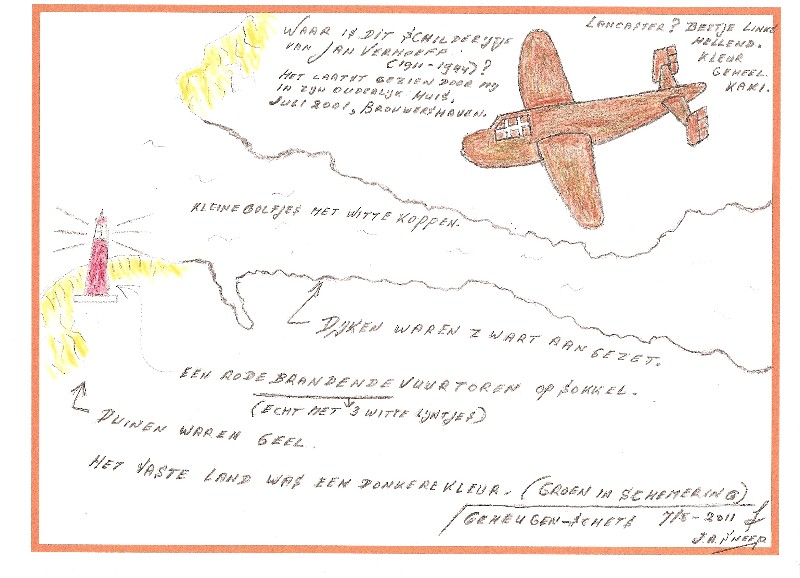 WAAR IS DIT SCHILDERIJTJE
VAN JAN VERHOEFF.
(1911-1944)?
HET LAATST GEZIEN DOOR MIJ
IN ZIJN OUDERLIJK HUIS.
JULI 2001, BROUWERSHAVEN.
LANCASTER? BEETJE LINKS
HELLEND.
KLEUR
GEHEEL
KAKI.
KLEINE GOLFJES MET WITTE KOPPEN.
DIJKEN WAREN ZWART AANGEZET.
EEN RODE BRANDENDE VUURTOREN OP SOKKEL.
(ECHT MET 3 WITTE LIJNTJES)
DUINEN WAREN GEEL.
HET VASTE LAND WAS EEN DONKERE KLEUR. (GROEN IN SCHEMERING)
GEHEUGEN-SCHETS 7/5-2011
J.A. SNEEP